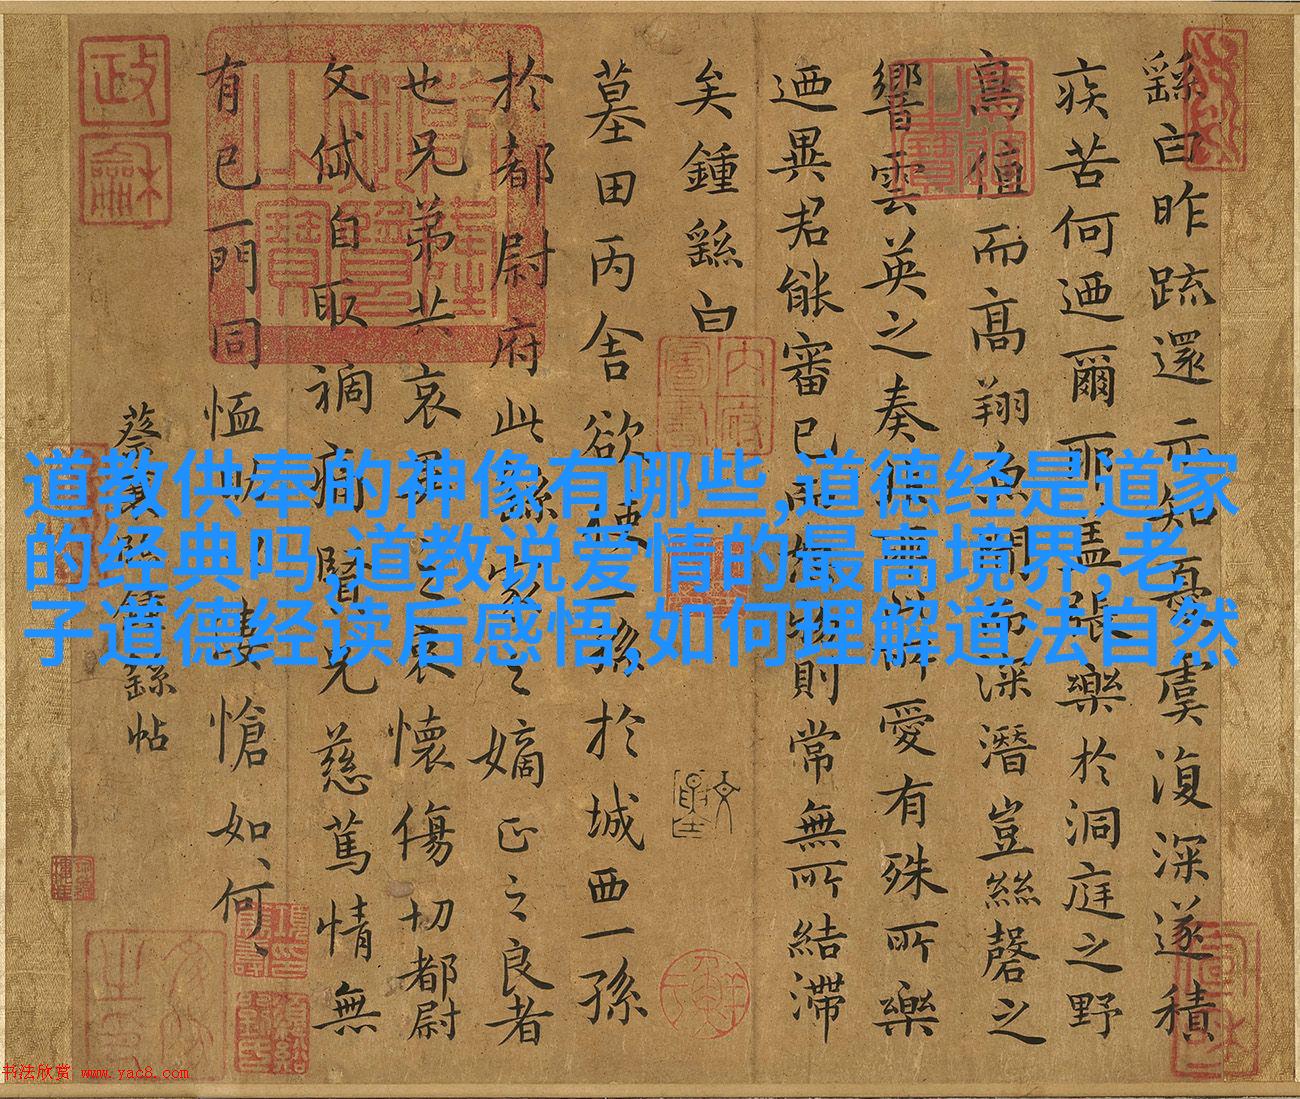 道教供奉的神像有哪些,道德经是道家
的经典吗,道教说爱情的最高境界,老
子道德经读后感悟,如何理解道法自然
繇白昨疏還示知憂虞復深遂積
疾苦何迺爾耶蓋張樂於洞庭之野
鳥值而高翔魚聞而深潛豈絲磬之
響雲英之奏 愛有殊所樂
迺異君能審己而恕物則常無所結滯
矣鍾繇白
墓田丙舍欲使一孫於城西一孫
於都尉府此繇家之嫡正之良者
也兄弟共哀異之哀懷傷切都尉
文 自取禍痛賢兄慈篤情無
有已一門同恤助 悽愴如、何、
蔡襄臨鍾繇帖
政龢
书法欣赏 www.yac8.com